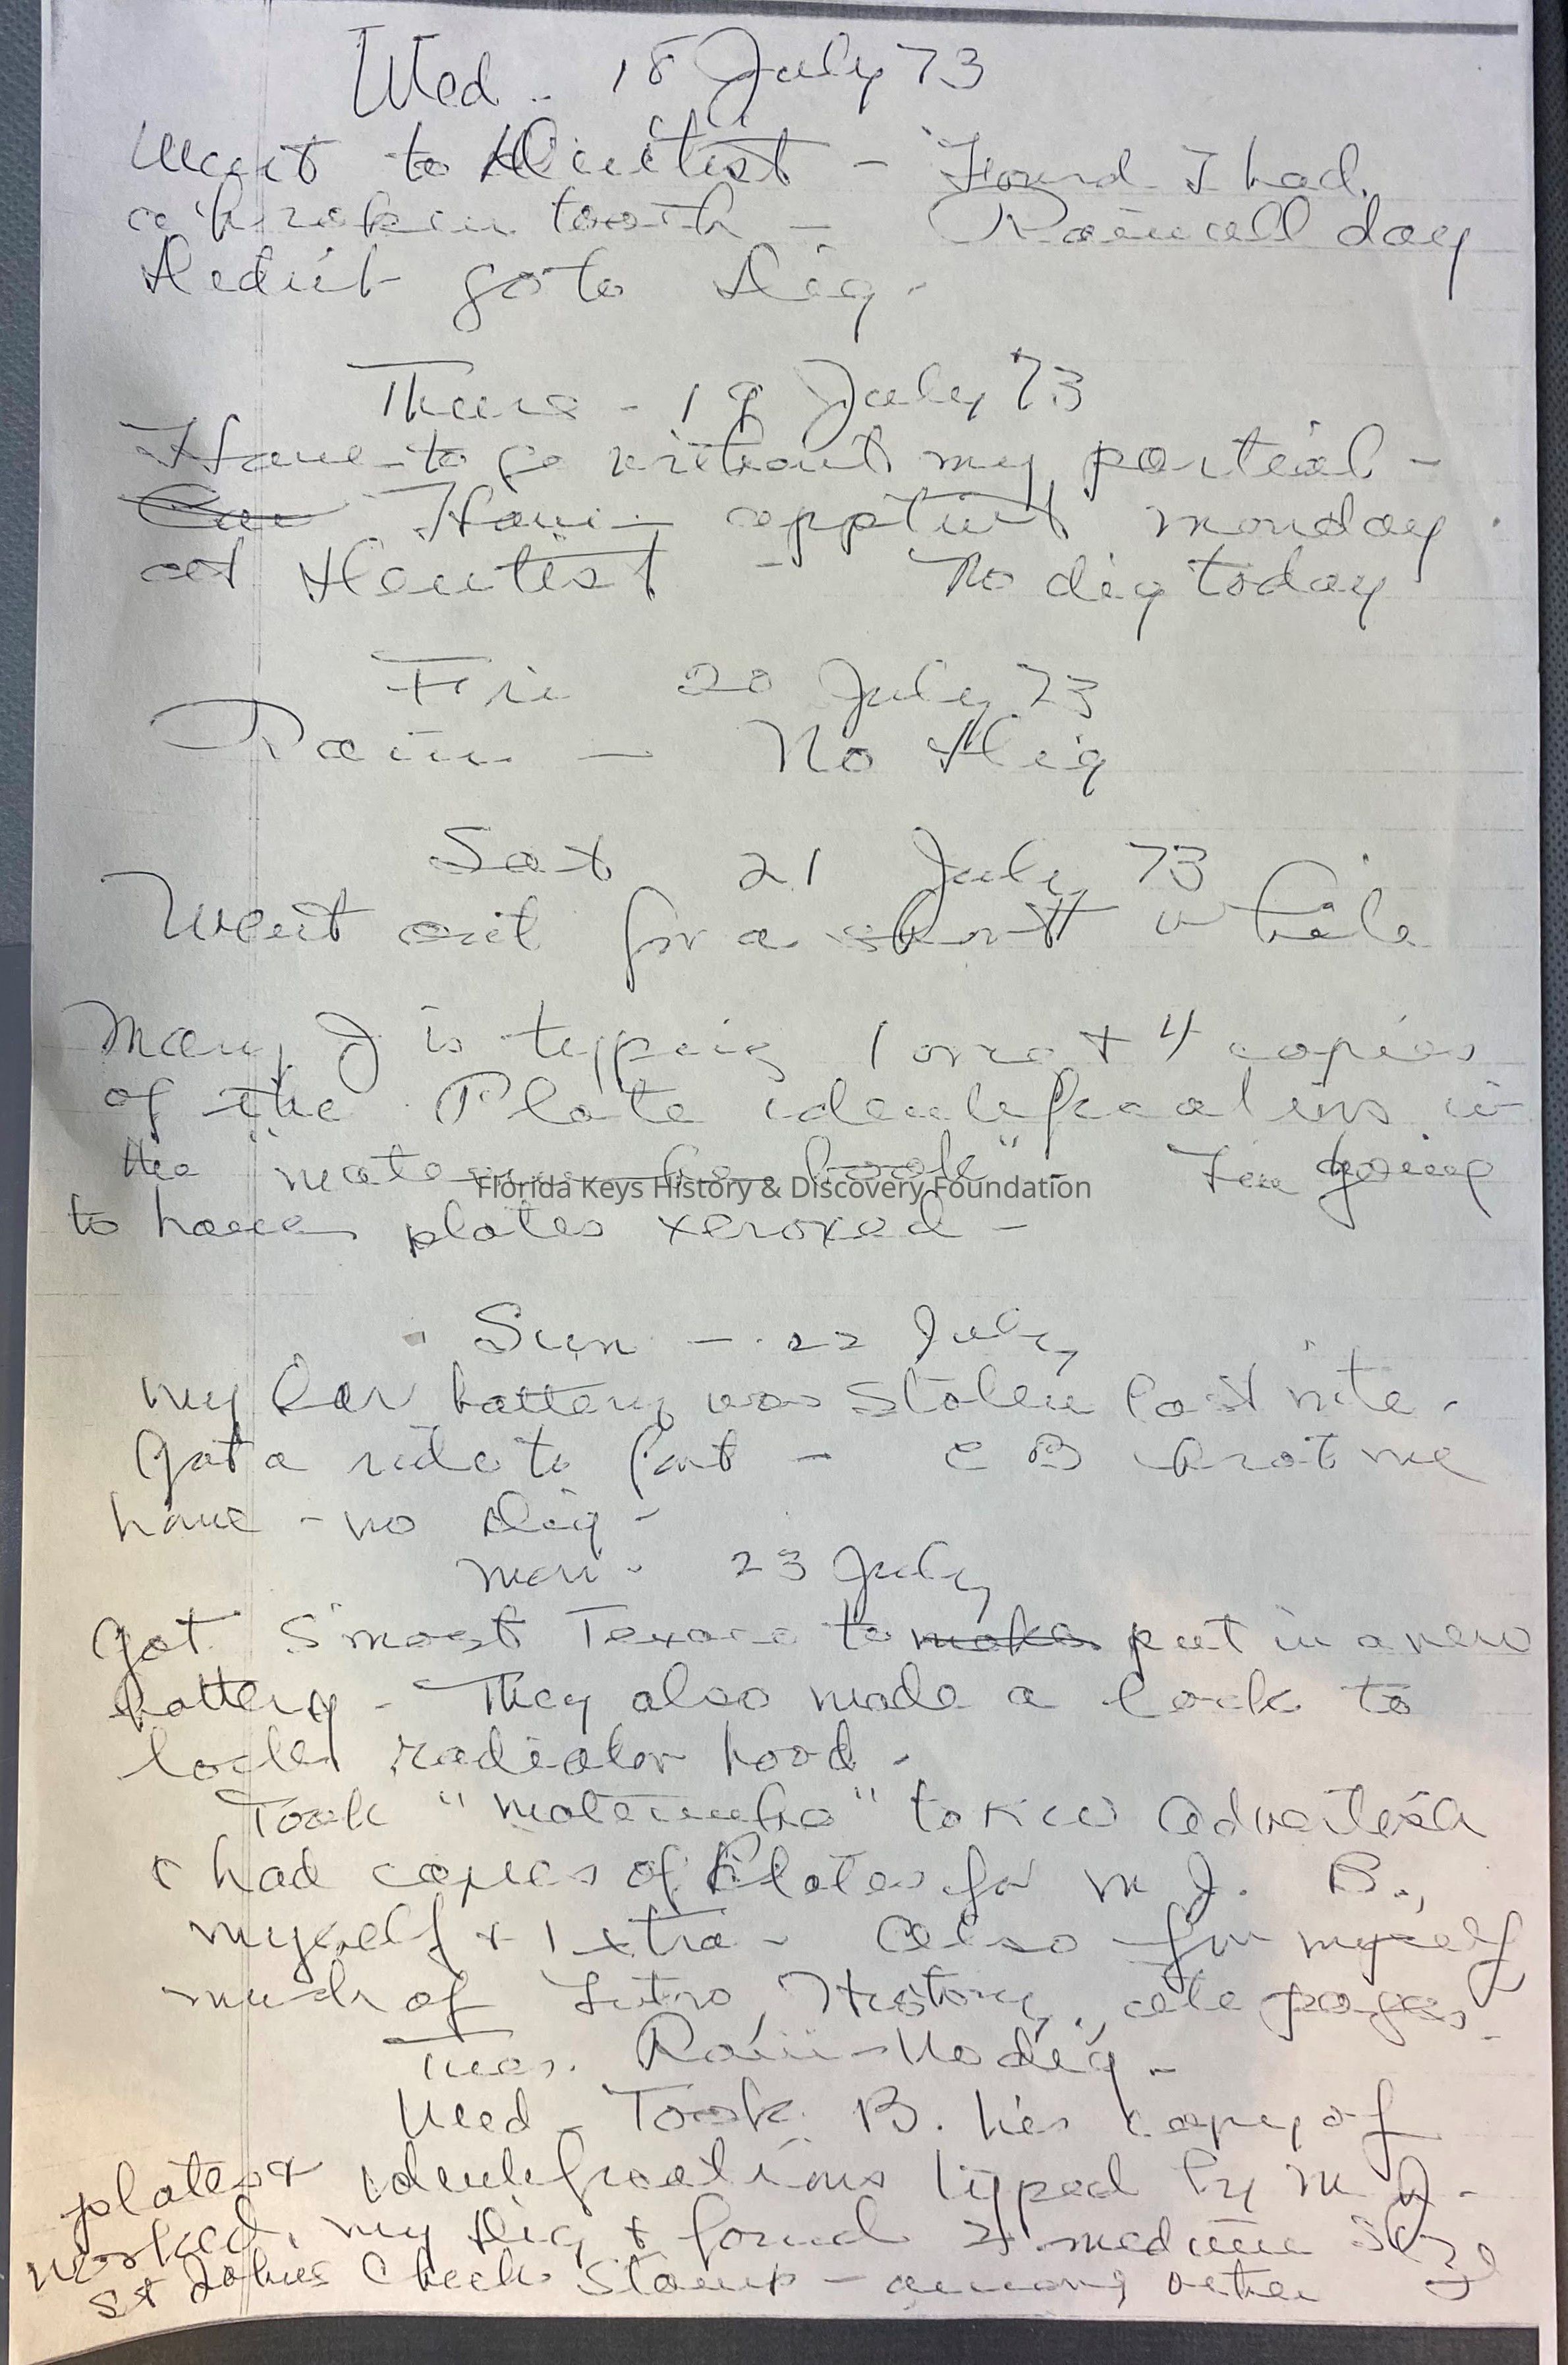 Wed.. 18 July 73
Went to Dentist - Found I had
a broken tooth - Rained all day
Hedint go to dig.
Thurs - 19 July 73
Have to go without my partial -
Have apptmt monday
at dentist - No dig today
Fri 20 July 73
Rain - No dig
Sat 21 July 73
Went out for a short while
Mary J is typing 1 orig + 4 copies
of the Plate identifications in
the "mate for book" - I'm going
to have plates xeroxed -
Florida Keys History & Discovery Foundation
Sun - 22 July
my car battery was stolen last nite.
Got a ride to fort - C B brot me
home - no dig -
mon - 23 July
Got S'most Texaco to make put in a new
battery - They also made a lock to
lock radiator hood.
Took " " to KW Advertisa
& had copies of Plates for M J. B.,
myself & 1 xtra - Also for myself
much of Intro, History, etc pages -
Tues. Rain - No dig -
Wed - Took B. his copy of
plates & identifications typed by M J -
worked my dig & found 2 medium size
St Johns Check Stamp - among other